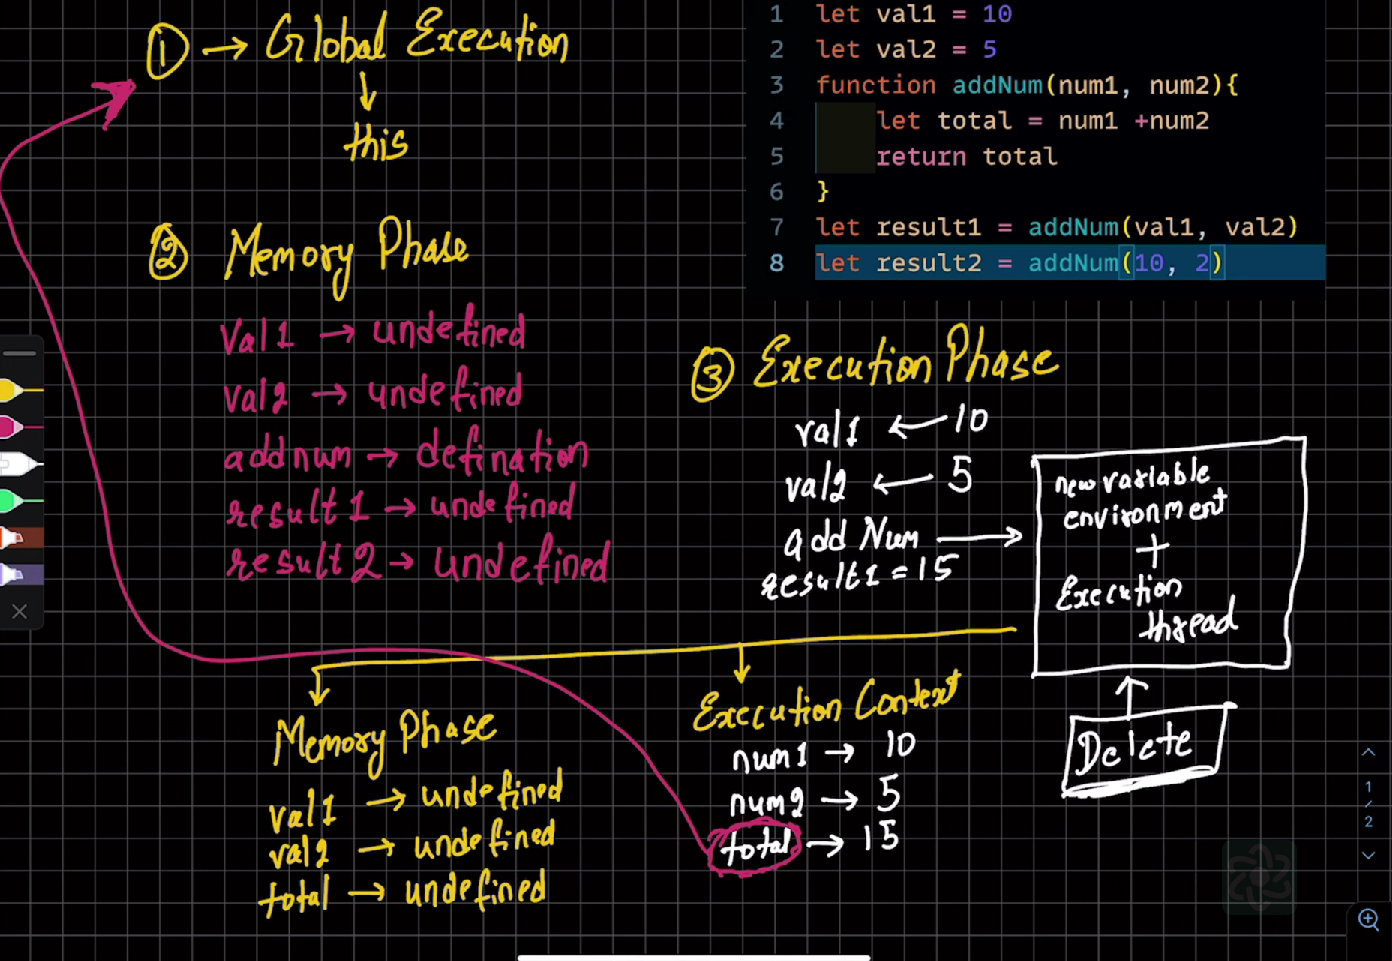 ① → Global Execution
↓
this
② Memory Phase
val1 → undefined
val2 → undefined
addnum → defination
result1 → undefined
result2 → undefined
1 let val1 = 10
2 let val2 = 5
3 function addNum(num1, num2){
4 let total = num1 +num2
5 return total
6 }
7 let result1 = addNum(val1, val2)
8 let result2 = addNum(10, 2)
③ Execution Phase
val1 ← 10
val2 ← 5
add Num →
result1 = 15
new variable
environment
+
Execution
thread
Delete
Memory Phase
val1 → undefined
val2 → undefined
total → undefined
Execution Context
num1 → 10
num2 → 5
total → 15
1
/
2